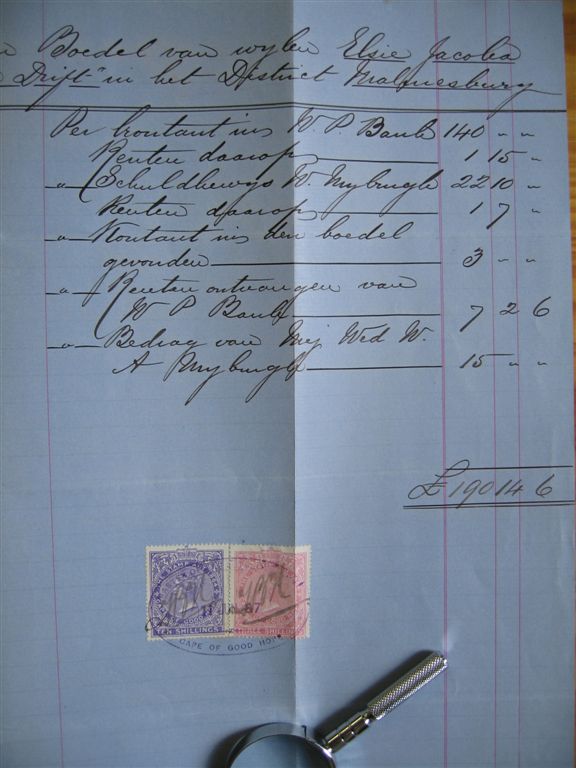 Boedel van wylen Elsie Jacoba
Drift" in het District Malmesburg
Per Contant in W. P. Bank 140 „ „
Renten daarop 1 15 „
„ Schuldbewys W. Myburgh 22 10 „
Renten daarop 1 7 „
„ Kontant in den boedel
gevonden 3 „ „
„ Renten ontvangen van
W P Bank 7 2 6
„ Bedrag van Mej Wed W.
A Myburgh 15 „ „
£ 190 14 6
TEN SHILLINGS THREE SHILLINGS
CAPE OF GOOD HOPE